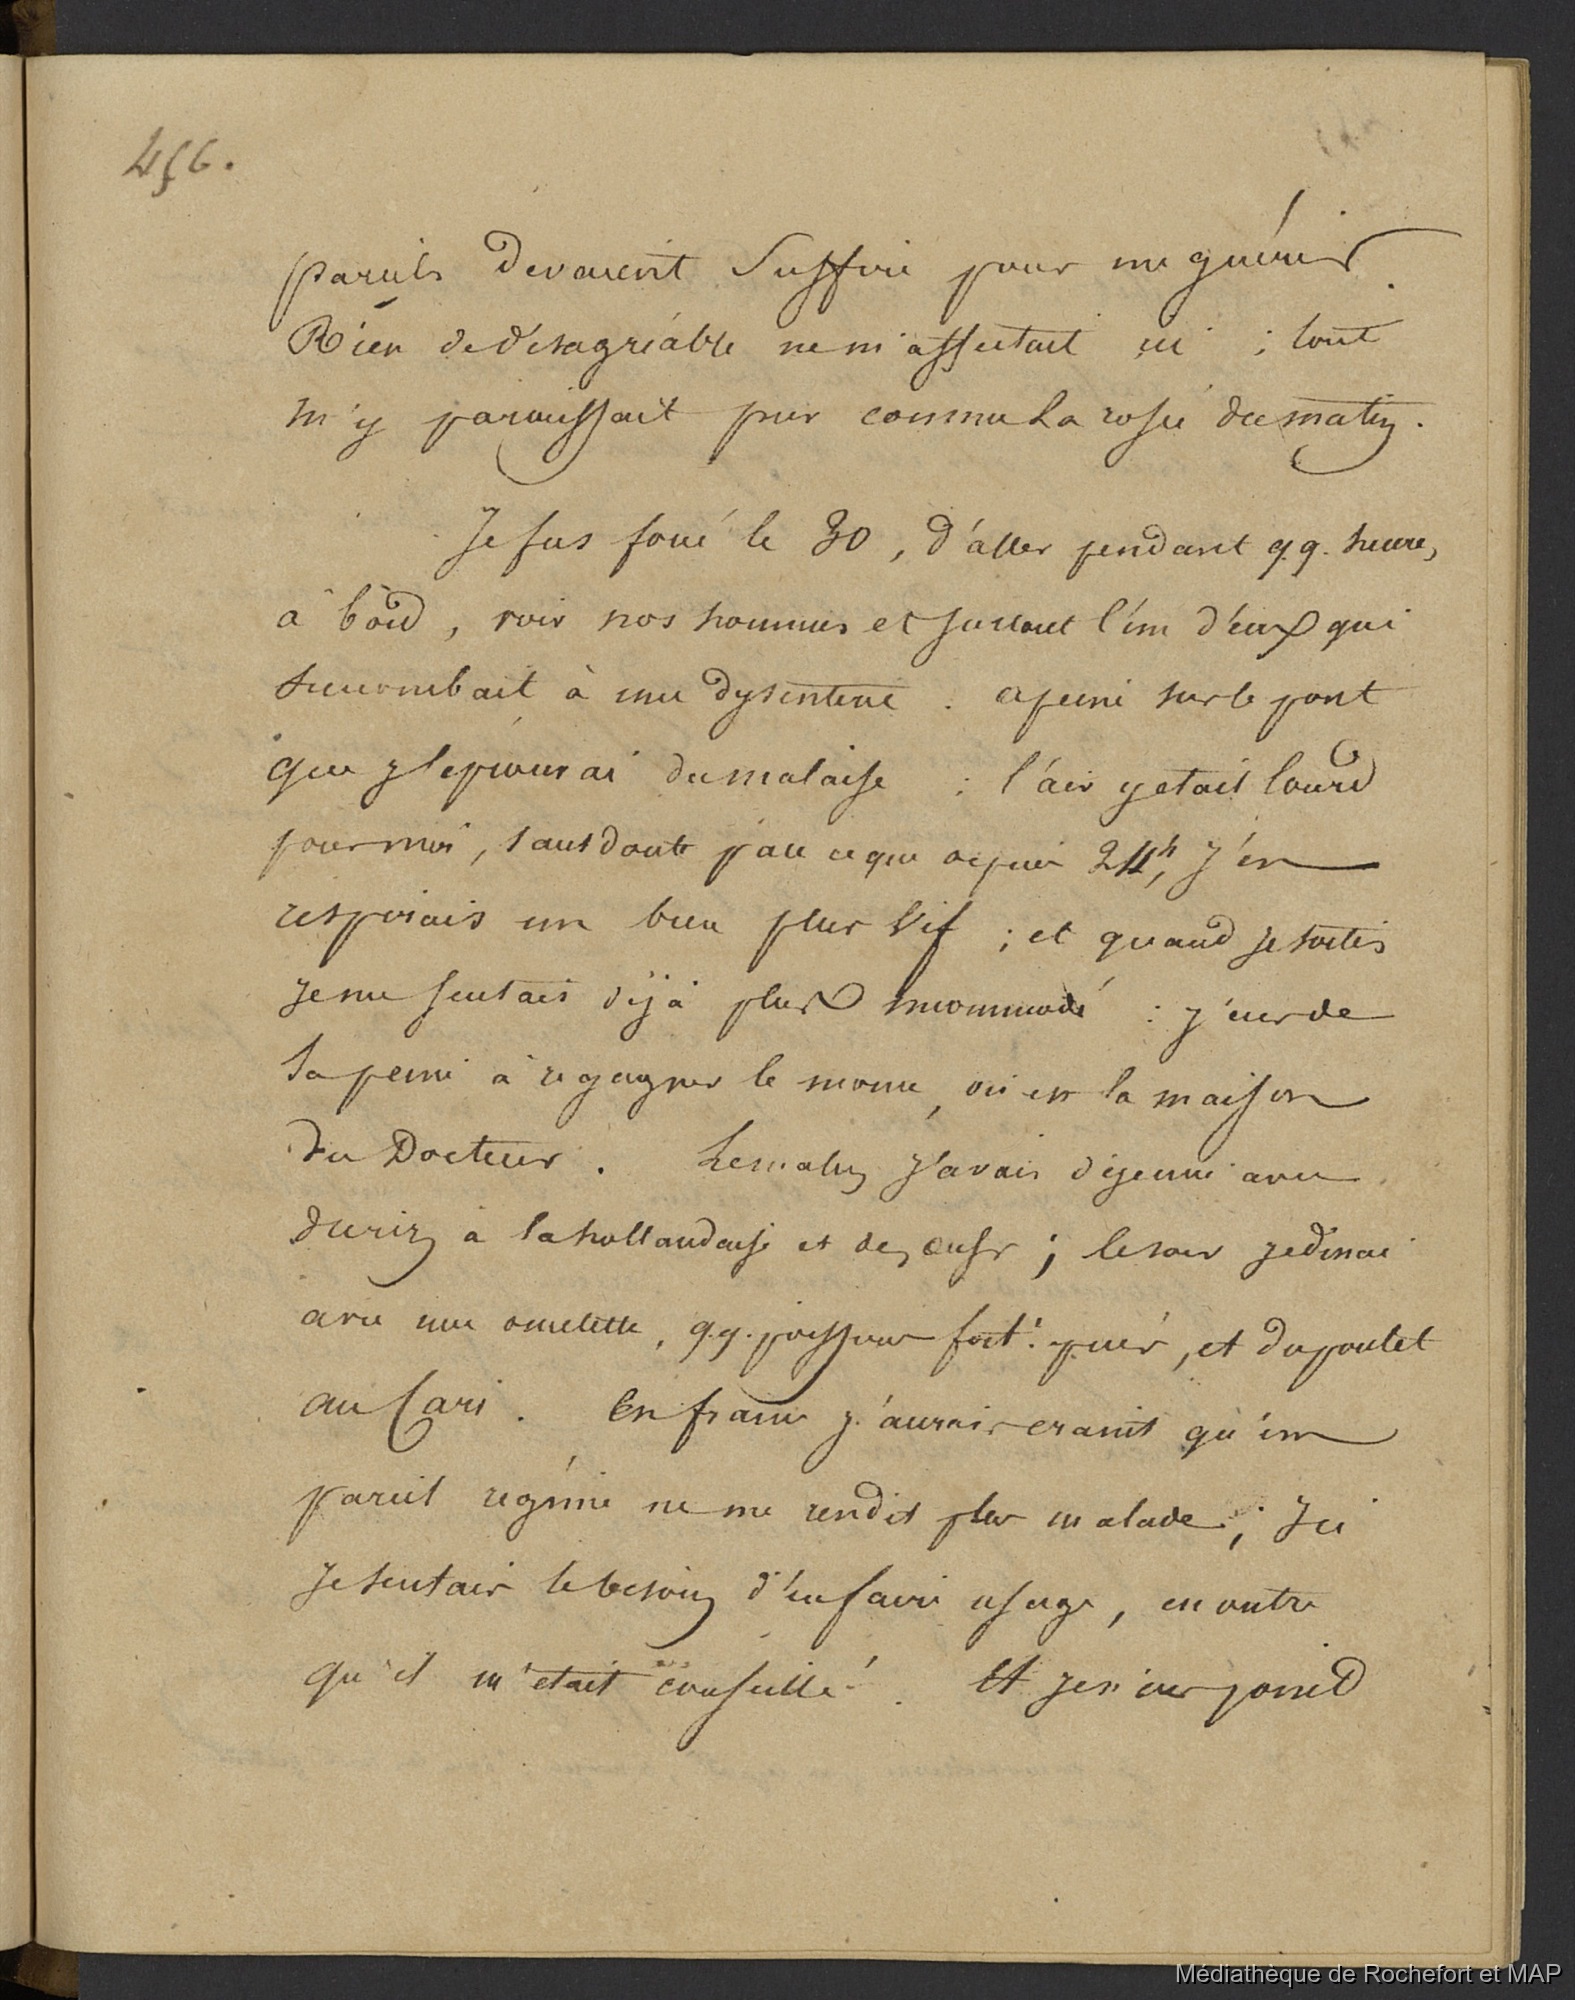 456.
pareils devaient suffire pour me guérir
Rien de désagréable ne m'affectait ici ; tout
m'y paraissait pur comme la rosée du matin.
Je fus forcé le 30, d'aller pendant q.q. heures,
à bord, voir nos hommes et surtout l'un d'eux qui
succombait à une dysenterie. apeine sur le pont
que j'eprouvai du malaise : l'air y etait lourd
pour moi, sans doute parce que depuis 24h, j'en
respirais un bien plus vif ; et quand je sortis
je me sentais déjà plus incommodé : j'eus de
la peine à regagner le morne, où est la maison
du Docteur. Le matin j'avais déjeuné avec
du riz à la hollandaise et des œufs ; le soir je dinai
avec une omelette, q.q. poissons fort. , et du poulet
au Cari. En france j'aurais craint qu'un
pareil régime ne me rendit plus malade ; Ici
je sentais le besoin d'en faire usage, en outre
qu'il m'etait conseillé. Et je n'eus point
Médiathèque de Rochefort et MAP